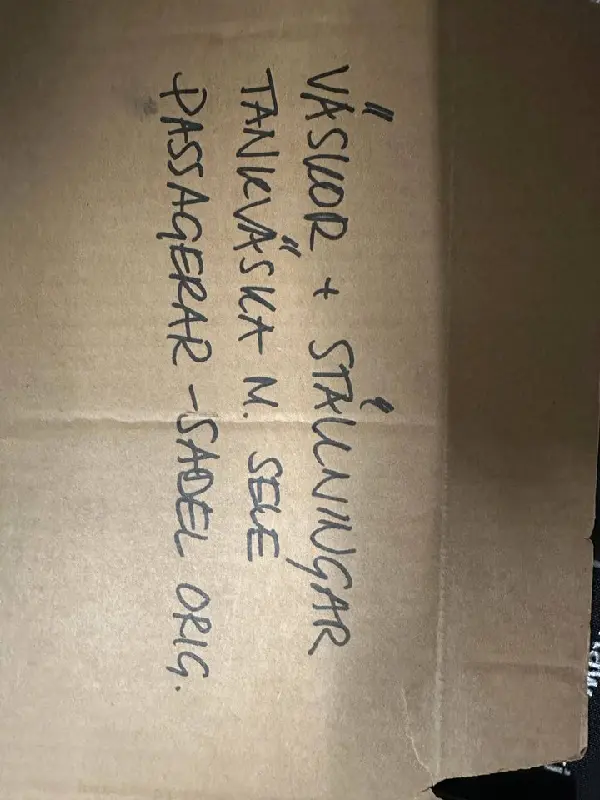 VÄSKOR + STÄLLNINGAR
TANKVÄSKA M. SELE
PASSAGERAR-SADEL ORIG.